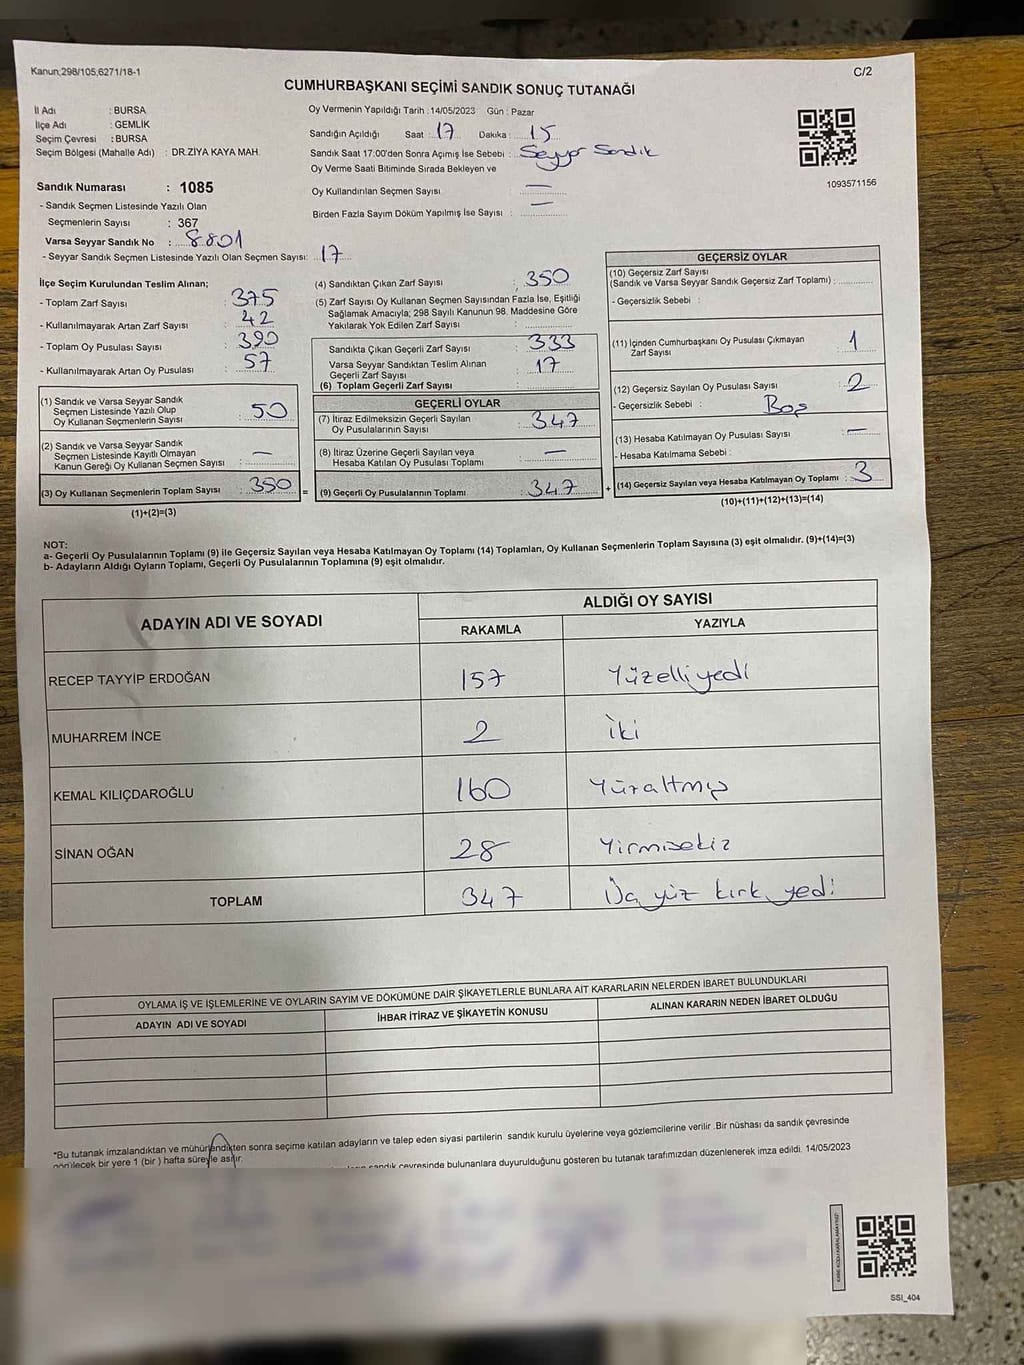 Kanun;298/105,6271/18-1
C/2
CUMHURBAŞKANI SEÇİMİ SANDIK SONUÇ TUTANAĞI
İl Adı : BURSA
İlçe Adı : GEMLİK
Seçim Çevresi : BURSA
Seçim Bölgesi (Mahalle Adı) : DR.ZİYA KAYA MAH.
Oy Vermenin Yapıldığı Tarih : 14/05/2023 Gün : Pazar
Sandığın Açıldığı Saat : 17 Dakika : 15
Sandık Saat 17:00'den Sonra Açımış İse Sebebi : Seyyar Sandık
Oy Verme Saati Bitiminde Sırada Bekleyen ve
Oy Kullandırılan Seçmen Sayısı : —
Birden Fazla Sayım Döküm Yapılmış İse Sayısı : —
1093571156
Sandık Numarası : 1085
- Sandık Seçmen Listesinde Yazılı Olan
Seçmenlerin Sayısı : 367
Varsa Seyyar Sandık No : 8801
- Seyyar Sandık Seçmen Listesinde Yazılı Olan Seçmen Sayısı: 17
İlçe Seçim Kurulundan Teslim Alınan;
- Toplam Zarf Sayısı : 375
- Kullanılmayarak Artan Zarf Sayısı : 42
- Toplam Oy Pusulası Sayısı : 390
- Kullanılmayarak Artan Oy Pusulası : 57
(1) Sandık ve Varsa Seyyar Sandık
Seçmen Listesinde Yazılı Olup
Oy Kullanan Seçmenlerin Sayısı : 50
(2) Sandık ve Varsa Seyyar Sandık
Seçmen Listesinde Kayıtlı Olmayan
Kanun Gereği Oy Kullanan Seçmen Sayısı : —
(3) Oy Kullanan Seçmenlerin Toplam Sayısı : 350
(1)+(2)=(3)
(4) Sandıktan Çıkan Zarf Sayısı : 350
(5) Zarf Sayısı Oy Kullanan Seçmen Sayısından Fazla İse, Eşitliği
Sağlamak Amacıyla; 298 Sayılı Kanunun 98. Maddesine Göre
Yakılarak Yok Edilen Zarf Sayısı :
Sandıkta Çıkan Geçerli Zarf Sayısı : 333
Varsa Seyyar Sandıktan Teslim Alınan
Geçerli Zarf Sayısı : 17
(6) Toplam Geçerli Zarf Sayısı :
GEÇERLİ OYLAR
(7) İtiraz Edilmeksizin Geçerli Sayılan
Oy Pusulalarının Sayısı : 347
(8) İtiraz Üzerine Geçerli Sayılan veya
Hesaba Katılan Oy Pusulası Toplamı : —
= (9) Geçerli Oy Pusulalarının Toplamı : 347
GEÇERSİZ OYLAR
(10) Geçersiz Zarf Sayısı
(Sandık ve Varsa Seyyar Sandık Geçersiz Zarf Toplamı) :
- Geçersizlik Sebebi :
(11) İçinden Cumhurbaşkanı Oy Pusulası Çıkmayan
Zarf Sayısı : 1
(12) Geçersiz Sayılan Oy Pusulası Sayısı : 2
- Geçersizlik Sebebi : Boş
(13) Hesaba Katılmayan Oy Pusulası Sayısı : —
- Hesaba Katılmama Sebebi :
+ (14) Geçersiz Sayılan veya Hesaba Katılmayan Oy Toplamı : 3
(10)+(11)+(12)+(13)=(14)
NOT:
a- Geçerli Oy Pusulalarının Toplamı (9) ile Geçersiz Sayılan veya Hesaba Katılmayan Oy Toplamı (14) Toplamları, Oy Kullanan Seçmenlerin Toplam Sayısına (3) eşit olmalıdır. (9)+(14)=(3)
b- Adayların Aldığı Oyların Toplamı, Geçerli Oy Pusulalarının Toplamına (9) eşit olmalıdır.
ADAYIN ADI VE SOYADI
ALDIĞI OY SAYISI
RAKAMLA YAZIYLA
RECEP TAYYİP ERDOĞAN 157 Yüzelliyedi
MUHARREM İNCE 2 İki
KEMAL KILIÇDAROĞLU 160 Yüzaltmış
SİNAN OĞAN 28 Yirmisekiz
TOPLAM 347 Üç yüz kırk yedi
OYLAMA İŞ VE İŞLEMLERİNE VE OYLARIN SAYIM VE DÖKÜMÜNE DAİR ŞİKAYETLERLE BUNLARA AİT KARARLARIN NELERDEN İBARET BULUNDUKLARI
ADAYIN ADI VE SOYADI İHBAR İTİRAZ VE ŞİKAYETİN KONUSU ALINAN KARARIN NEDEN İBARET OLDUĞU
*Bu tutanak imzalandıktan ve mühürlendikten sonra seçime katılan adayların ve talep eden siyasi partilerin sandık kurulu üyelerine veya gözlemcilerine verilir .Bir nüshası da sandık çevresinde
görülecek bir yere 1 (bir ) hafta süreyle asılır.
sandık çevresinde bulunanlara duyurulduğunu gösteren bu tutanak tarafımızdan düzenlenerek imza edildi. 14/05/2023
SSI_404